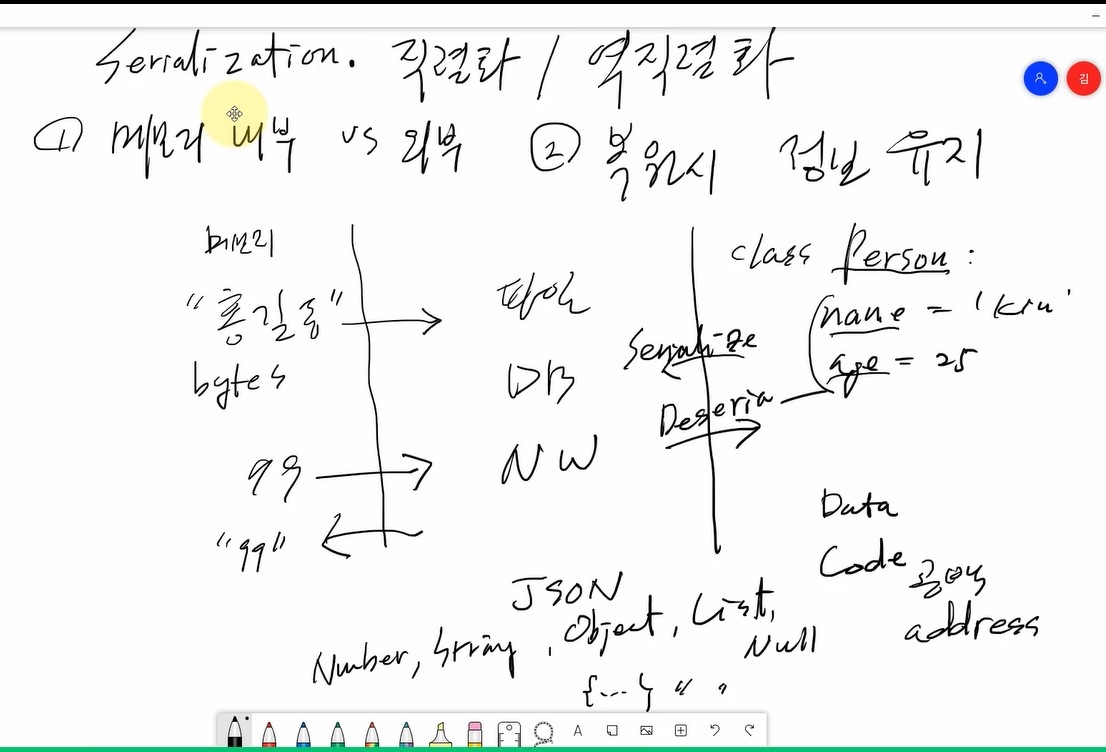 Serialization. 직렬화 / 역직렬화
① 메모리 내부 vs 외부 ② 복원시 정보 유지
메모리
"홍길동"
bytes
99
"99"
파일
DB
NW
Serialize
Deseria
class Person :
name = 'Kim'
age = 25
Data
Code 공백
address
JSON
Number, String, Object, List,
Null
{...} " "
김
A